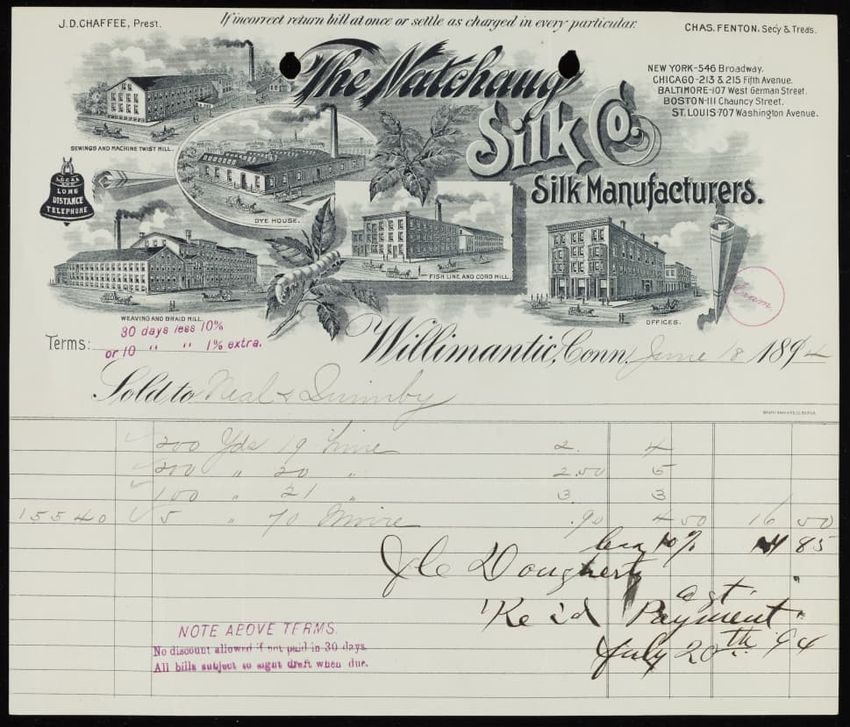 J.D. CHAFFEE, Prest.
If incorrect return bill at once or settle as charged in every particular.
CHAS. FENTON, Sec'y & Treas.
The Natchaug
Silk Co.
Silk Manufacturers.
NEW YORK-546 Broadway.
CHICAGO-213 & 215 Fifth Avenue.
BALTIMORE-107 West German Street.
BOSTON-111 Chauncy Street.
ST. LOUIS-707 Washington Avenue.
SEWINGS AND MACHINE TWIST MILL.
LOCAL
LONG
DISTANCE
TELEPHONE
DYE HOUSE.
FISH LINE AND CORD MILL.
WEAVING AND BRAID MILL.
OFFICES.
Terms: 30 days less 10%
or 10 " " 1% extra.
Willimantic, Conn. June 18 1894
Sold to Neal & Quimby
200 Yds 19 Line 2. 4
200 " 20 " 2.50 5
100 " 21 " 3. 3
15540 5 " 70 .90 4 50 16 50
Less 10% 14 85
J C Dougherty
agt.
Rec'd Payment
July 20th 94
NOTE ABOVE TERMS.
No discount allowed if not paid in 30 days.
All bills subject to sight draft when due.